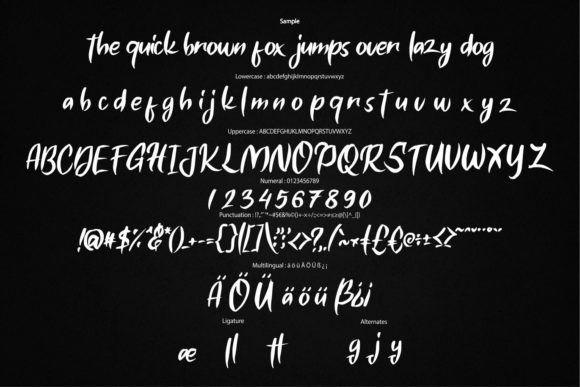 Sample
the quick brown fox jumps over lazy dog
Lowercase : abcdefghijklmnopqrstuvwxyz
a b c d e f g h i j k l m n o p q r s t u v w x y z
Uppercase : ABCDEFGHIJKLMNOPQRSTUVWXYZ
ABCDEFGHIJKLMNOPQRSTUVWXYZ
Numeral : 0123456789
1 2 3 4 5 6 7 8 9 0
Punctuation :
Multilingual : ä ö ü Ä Ö Ü ß ¿ ¡
Ä Ö Ü ä ö ü ß ¿ ¡
Ligature Alternates
æ ll tt g j y